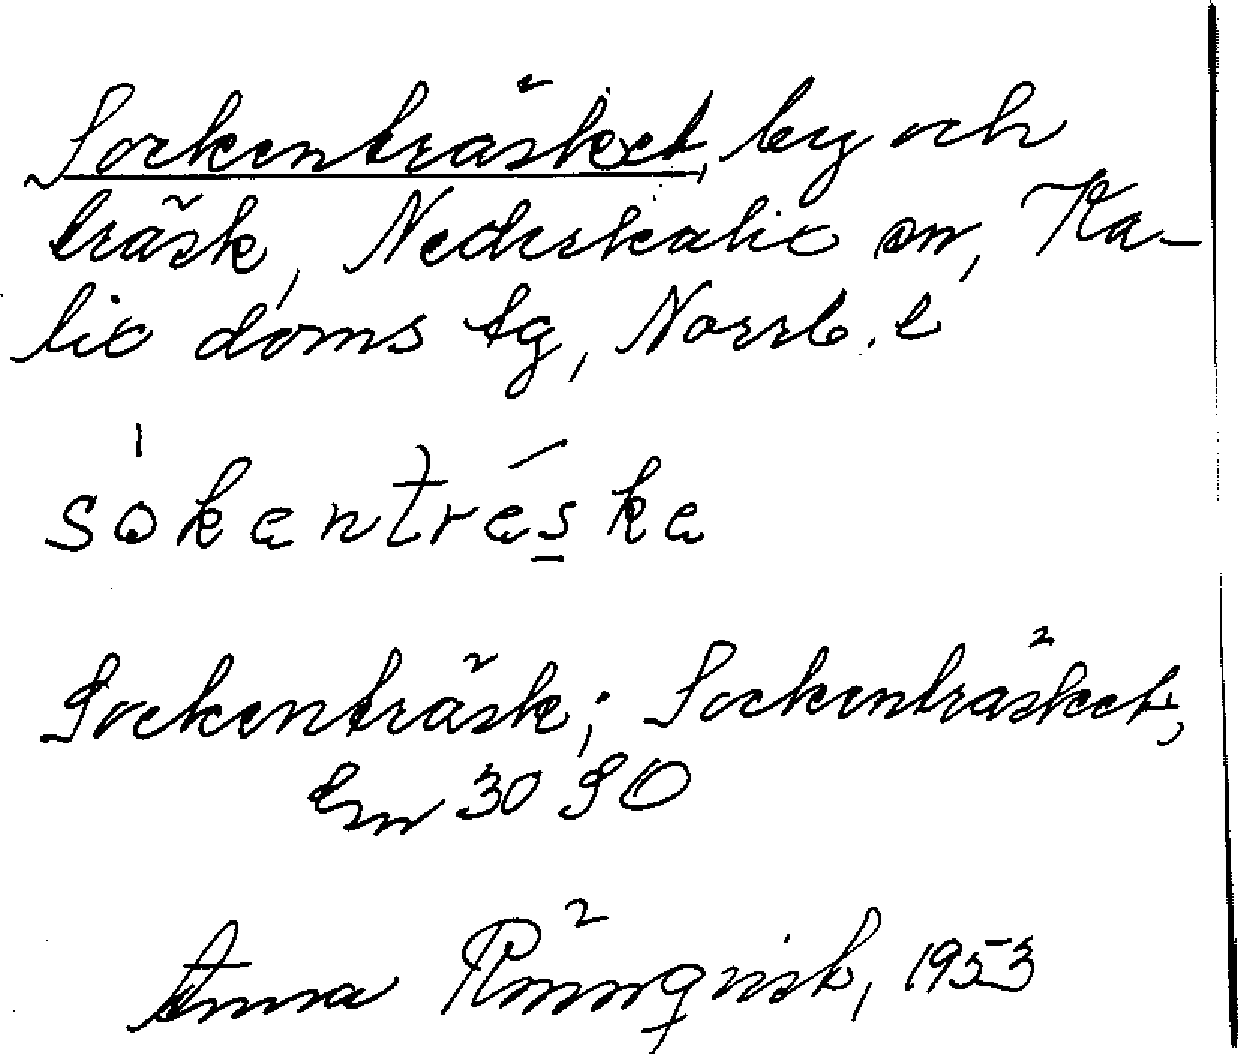 Sockenträsket, by och
träsk, Nederkalix sn, Ka-
lix doms tg, Norrb. l
sȯkentréske
Sockenträsk; Sockenträsket,
Em 30 SO
Anna Rönnqvist, 1953